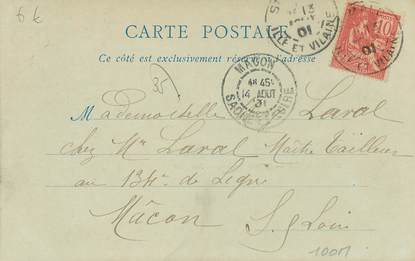 6 k
CARTE POSTALE
Ce côté est exclusivement réservé à l'adresse
10
01
ILLE ET VILAINE
01
MACON
4E 45
14 AOUT
SAONE ET LOIRE
35
Mademoiselle Laval
chez Mr Laval Maître Tailleur
au 134e de Ligne
Mâcon
S. & Loire
100M